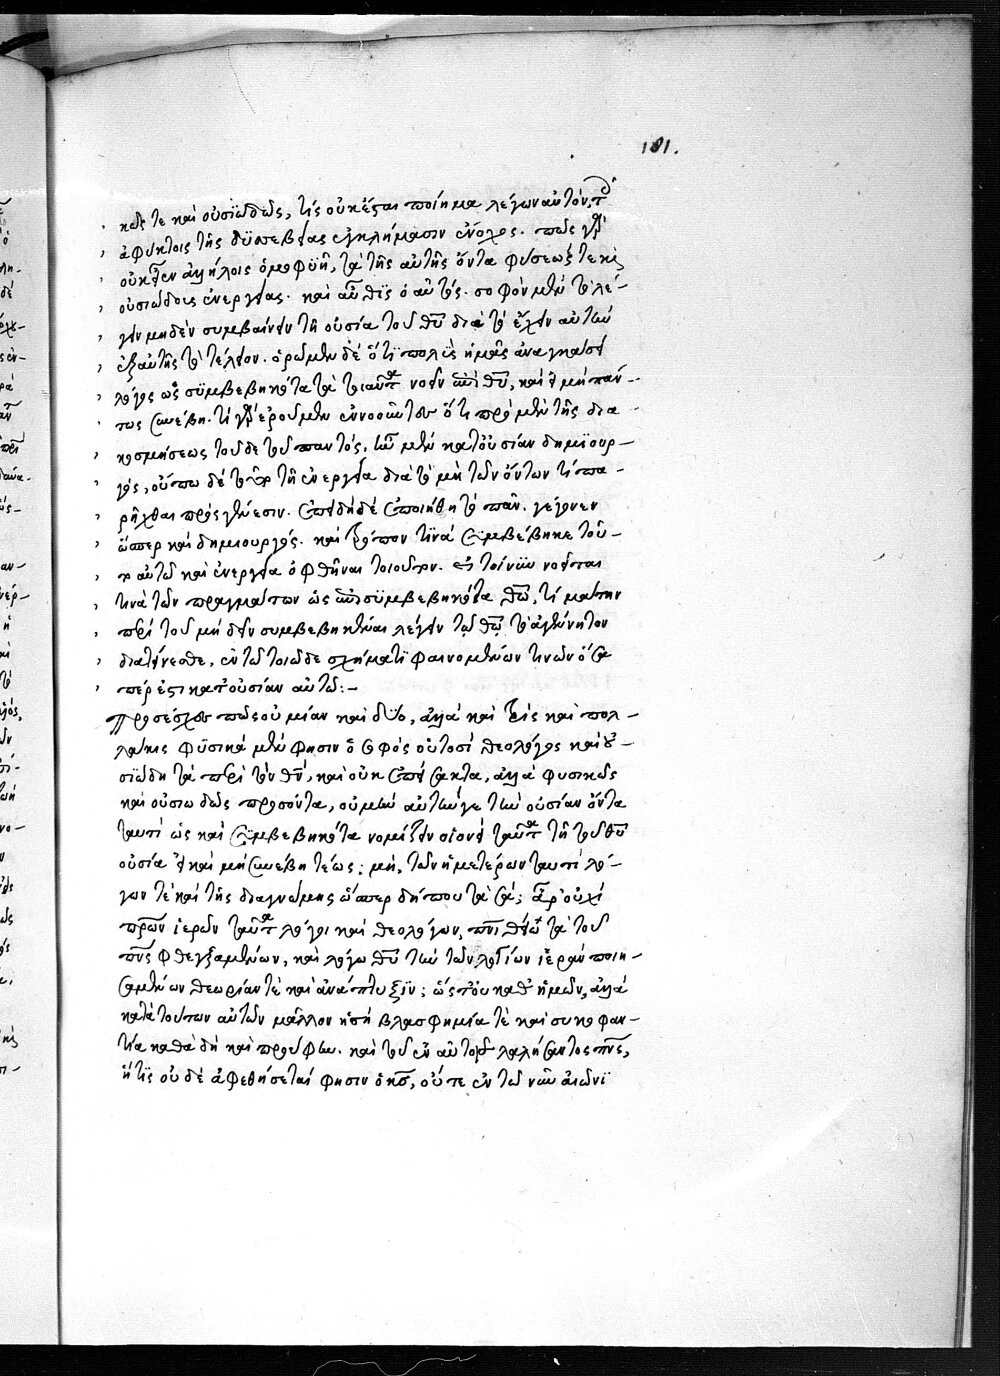 181.
κῶς τε καὶ οὐσιωδῶς, τίς οὐκ ἔσται ποίημα λέγων αὐτὸν, τοῖς
ἀφύκτοις τῆς δυσσεβείας ἐγκλήμασιν ἔνοχος. πῶς γὰρ
οὐκ ἐν ἀλλήλοις ὁμοφυῆ, τὰ τῆς αὐτῆς ὄντα φύσεώς τε καὶ
οὐσιώδους ἐνεργείας. καὶ αὖθις ὁ αὐτός. σοφὸν μὲν τὸ λέ-
γειν μηδὲν συμβαίνειν τῇ οὐσίᾳ τοῦ θεοῦ διὰ τὸ ἔχειν αὐτὴν
ἐξ αὐτῆς τὸ τέλειον. ὁρῶμεν δὲ ὅτι πολὺς ἡμᾶς ἀναγκάσει
λόγος ὡς συμβεβηκότα τὰ τοιαῦτα νοεῖν ἐπὶ θεοῦ, καὶ εἰ μὴ πάν-
τως συνέβη. τί γὰρ ἐροῦμεν ἐννοοῦντες ὅτι πρὸ μὲν τῆς δια-
κοσμήσεως τοῦδε τοῦ παντὸς, ἦν μὲν κατ' οὐσίαν δημιουρ-
γός, οὔπω δὲ τοῦτο τῇ ἐνεργείᾳ διὰ τὸ μὴ τῶν ὄντων τι πα-
ρῆχθαι πρὸς γένεσιν. ἐπειδὴ δὲ ἐποιήθη τὸ πᾶν. γέγονεν
ὥσπερ καὶ δημιουργός. καὶ τρόπον τινὰ συμβέβηκε τοῦ-
το αὐτῷ καὶ ἐνεργείᾳ ὀφθῆναι τοιοῦτον. εἰ τοίνυν νοεῖται
τινὰ τῶν πραγμάτων ὡς ἐπισυμβεβηκότα θεῷ, τί μάτην
περὶ τοῦ μὴ δεῖν συμβεβηκέναι λέγειν τῷ θεῷ τὸ ἀγένητον
διατείνεσθε, ἐν τῷ τοιῷδε σχήματι φαινομένων τινῶν ὅσα
πέρ ἐστι κατ' οὐσίαν αὐτῷ:-
Προσέσχες πῶς οὐ μίαν καὶ δύο, ἀλλὰ καὶ τρὶς καὶ πολ-
λάκις φυσικὰ μὲν φησιν ὁ σοφὸς οὑτοσὶ θεολόγος καὶ οὐ-
σιώδη τὰ περὶ τὸν θεὸν, καὶ οὐκ ἐπείσακτα, ἀλλὰ φυσικῶς
καὶ οὐσιωδῶς προσόντα, οὐ μὴν αὐτήν γε τὴν οὐσίαν ὄντα
ταυτὶ ὡς καὶ συμβεβηκότα νομίζειν οἱονεὶ ταῦτα τῇ τοῦ θεοῦ
οὐσίᾳ εἰ καὶ μὴ συνέβη τέως; μὴ, τῶν ἡμετέρων ταυτὶ λό-
γων τὲ καὶ τῆς διαγνώμης ὥσπερ δήπου τὰ σά; ἆρ' οὐχὶ
πρῶν ἱερῶν ταῦτα λόγοι καὶ θεολόγων, πνεύματι θείῳ τὰ τοῦ
πνεύματος φθεγξαμένων, καὶ λόγῳ θεοῦ τὴν τῶν λογίων ἱερὰν ποιη-
σαμένων θεωρίαν τὲ καὶ ἀνάπτυξιν; ὥστ' οὐ καθ' ἡμῶν, ἀλλὰ
κατὰ τούτων αὐτῶν μᾶλλον ἡ σὴ βλασφημία τὲ καὶ συκοφαν-
τία καθὰ δὴ καὶ προέφην. καὶ τοῦ ἐν αὐτοῖς λαλήσαντος πνεύματος,
ἥτις οὐδὲ ἀφεθήσεταί φησιν ὁ κύριος, οὔτε ἐν τῷ νῦν αἰῶνι